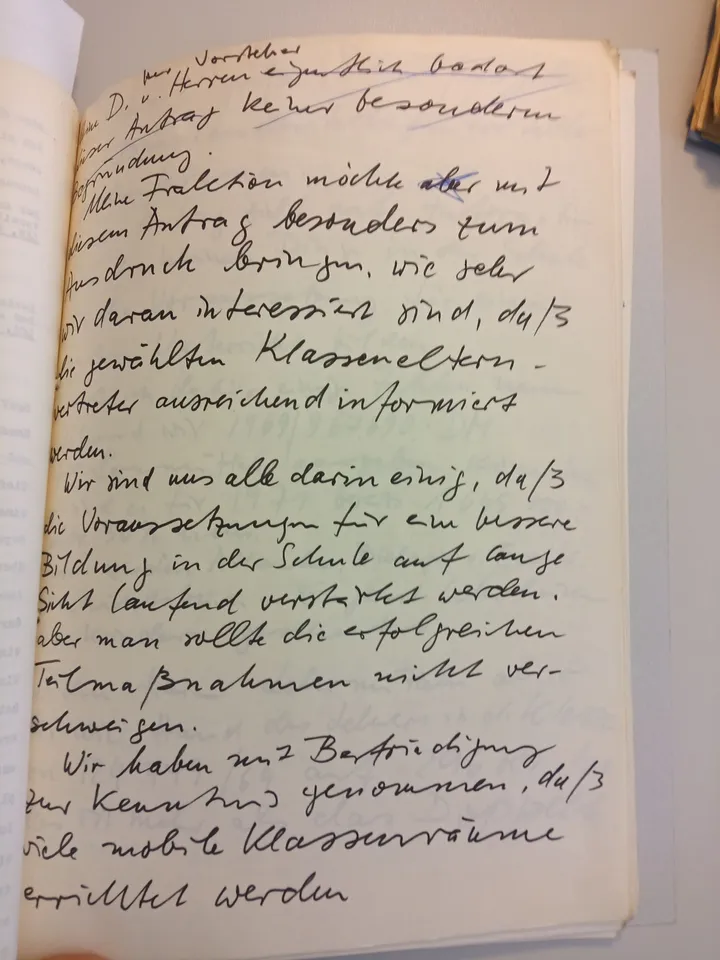 Herr Vorsteher
Meine D. u. Herren eigentlich bedarf
dieser Antrag keiner besonderen
Begründung.
Meine Fraktion möchte aber mit
diesem Antrag besonders zum
Ausdruck bringen, wie sehr
wir daran interessiert sind, daß
die gewählten Klasseneltern-
vertreter ausreichend informiert
werden.
Wir sind uns alle darin einig, daß
die Voraussetzungen für eine bessere
Bildung in der Schule auf lange
Sicht laufend verstärkt werden.
aber man sollte die erfolgreichen
Teilmaßnahmen nicht ver-
schweigen.
Wir haben mit Befriedigung
zur Kenntnis genommen, daß
viele mobile Klassenräume
errichtet werden